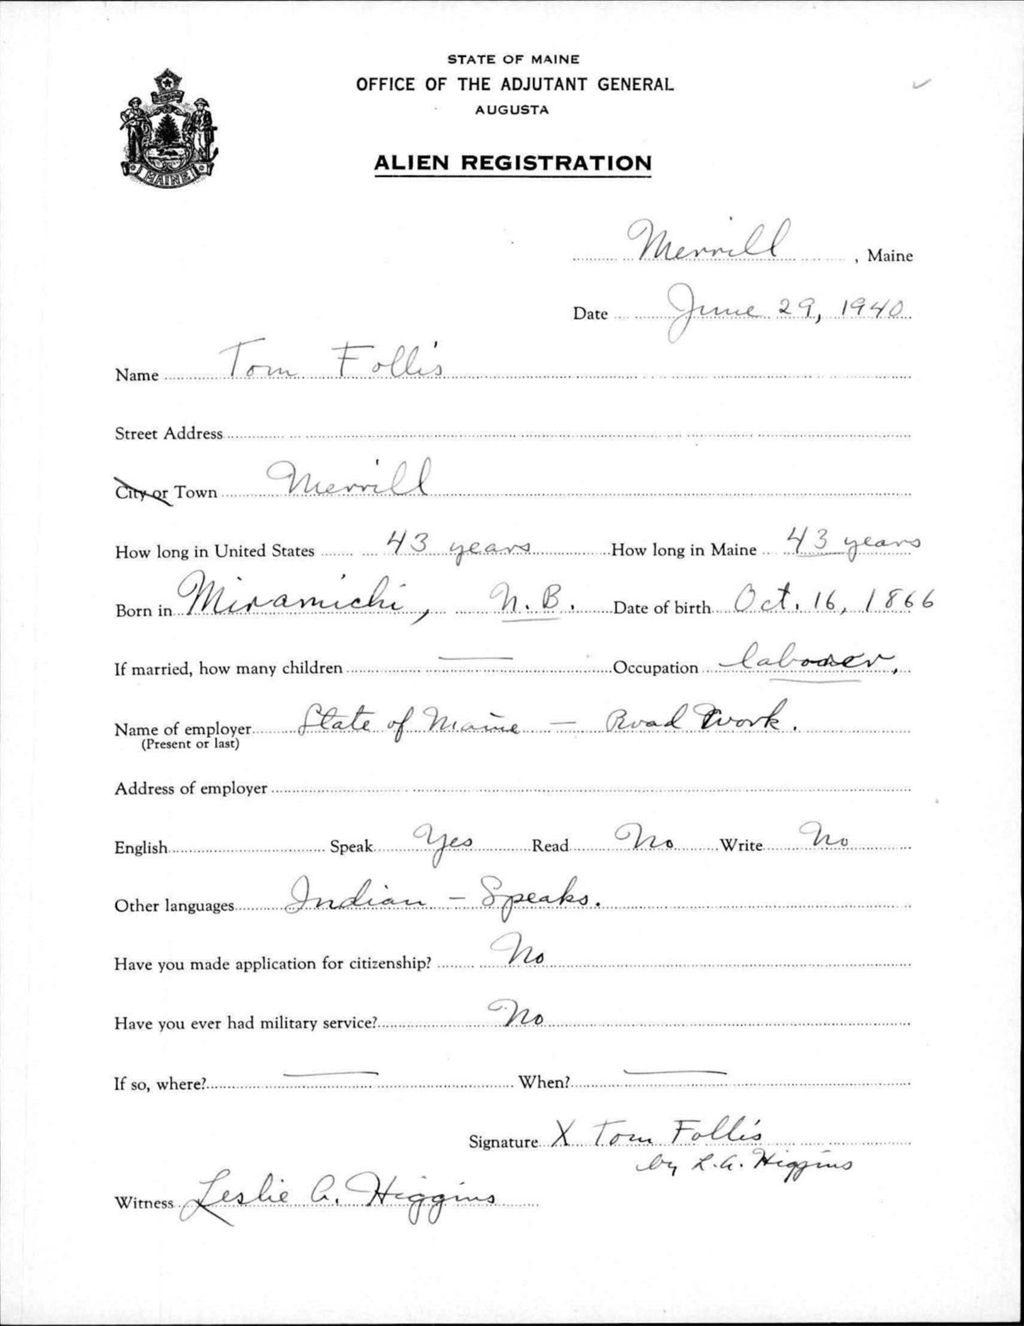 STATE OF MAINE
OFFICE OF THE ADJUTANT GENERAL
AUGUSTA
ALIEN REGISTRATION
MAINE
Merrill, Maine
Date June 29, 1940
Name Tom Follis
Street Address
City or Town Merrill
How long in United States 43 years How long in Maine 43 years
Born in Miramichi, N.B. Date of birth Oct. 16, 1866
If married, how many children — Occupation laborer.
Name of employer State of Maine — Road Work.
(Present or last)
Address of employer
English Speak Yes Read No Write No
Other languages Indian - Speaks.
Have you made application for citizenship? No
Have you ever had military service? No
If so, where? — When? —
Signature X Tom Follis
by L.A. Higgins
Witness Leslie A. Higgins